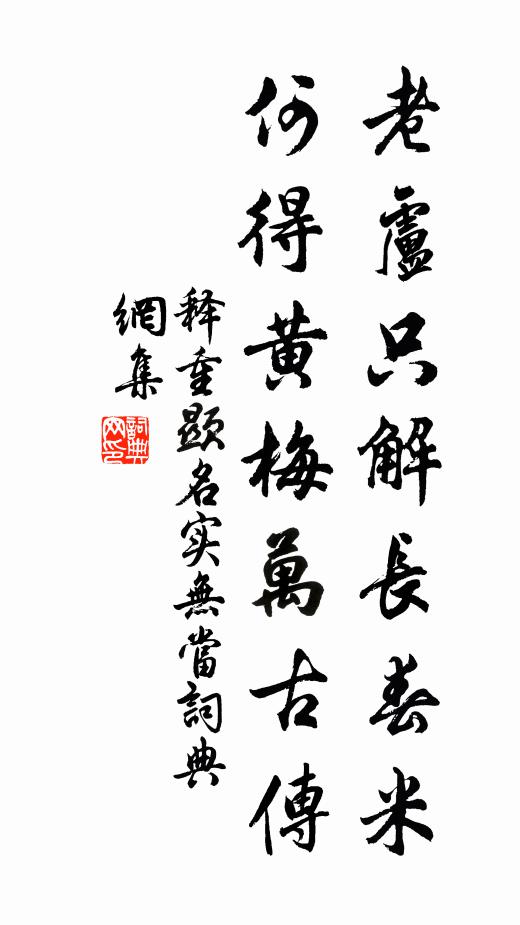 老盧只解長舂米
何得黄梅萬古傳
释重顯名实無當詞典
網集
詞典
网印